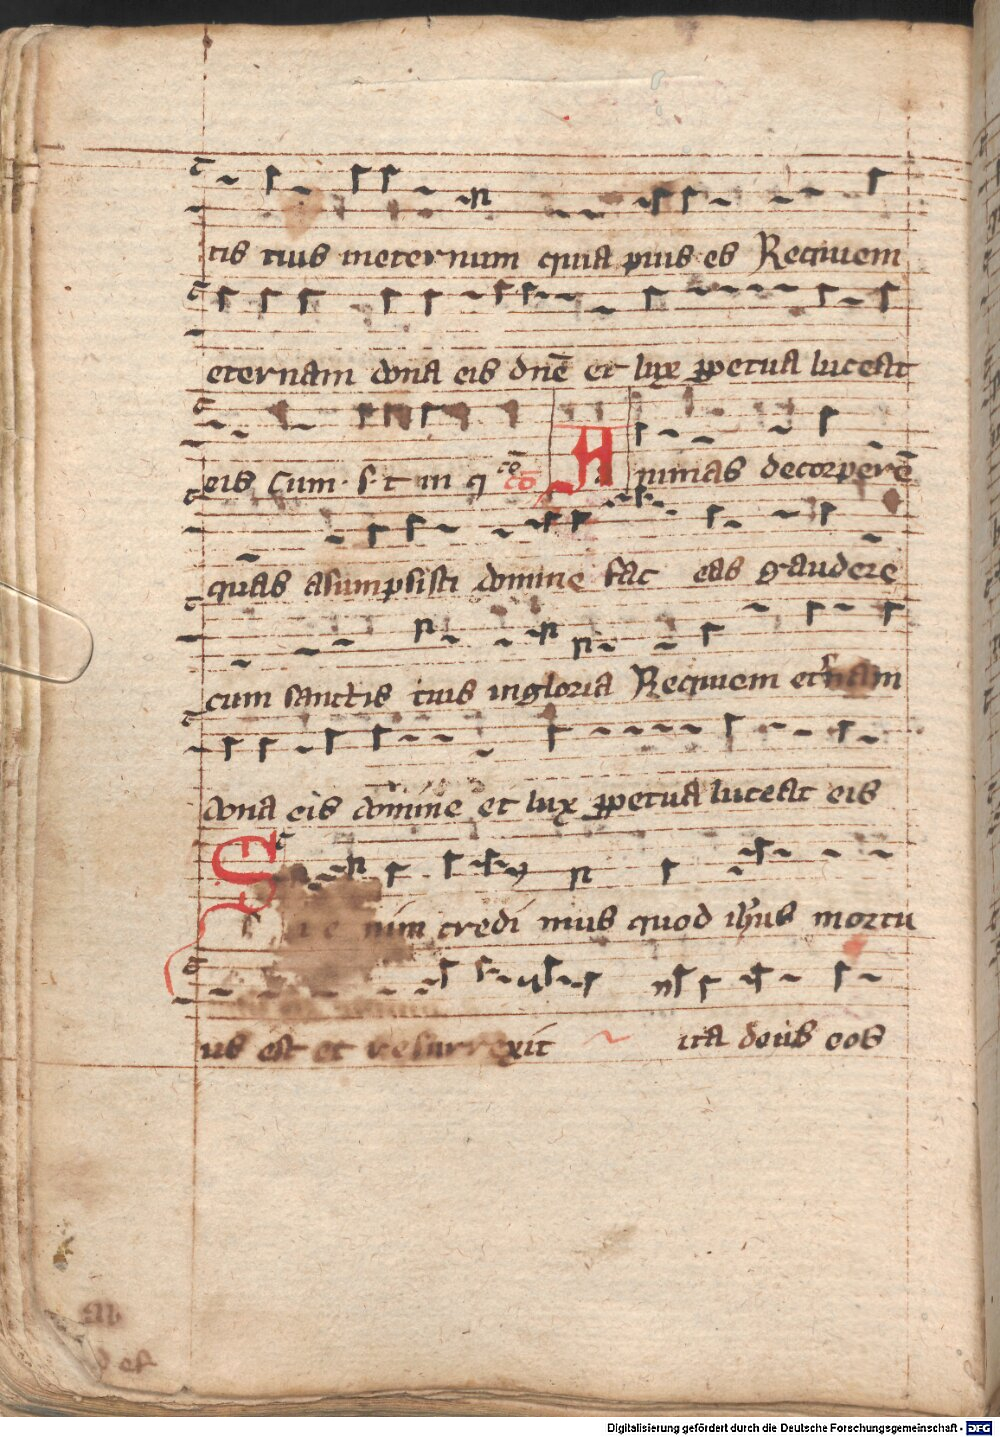 tis tuis ineternum quia pius es Requiem
eternam dona eis dnē et lux ꝑpetua luceat
eis Cum s t in q cō cō Animas decorperē
quas asumpsisti domine fac eas gaudere
cum sanctis tuis ingloria Requiem et'nam
dona eis domine et lux ꝑpetua luceat eis
S enim credi mus quod ihus mortu
us est et resurrexit ita deus eos
Digitalisierung gefördert durch die Deutsche Forschungsgemeinschaft - DFG